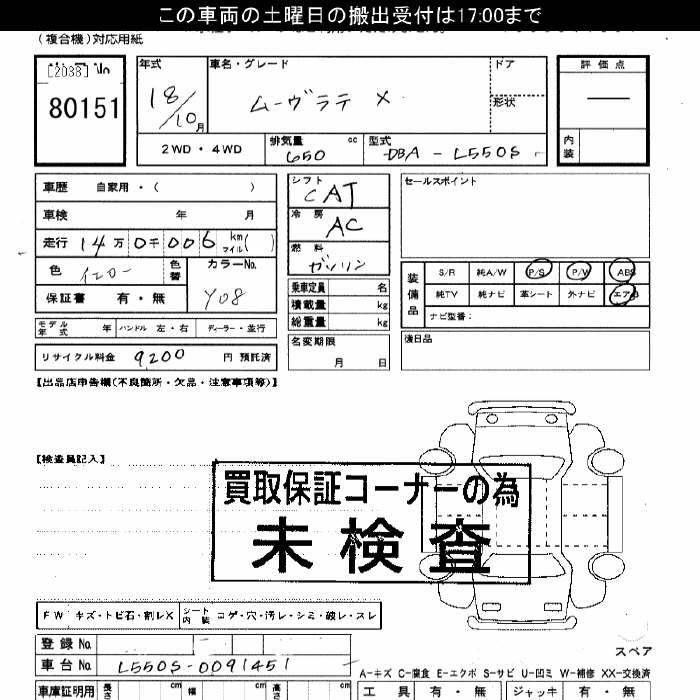 この車両の土曜日の搬出受付は17:00まで
(複合機)対応用紙
[2038]
80151
年式
18/10月
車名・グレード
ムーヴラテ X
ドア
形状
2WD・4WD
排気量 650 cc
型式 DBA-L550S
評価点
—
内装
車歴 自家用・( )
車検 年 月
走行 14万0千006 km マイル( )
色 イエロー 色替
カラーNo. Y08
保証書 有・無
モデル年式 年 ハンドル 左・右 ディーラー・並行
リサイクル料金 9200 円 預託済
シフト CAT
冷房 AC
燃料 ガソリン
乗車定員 名
積載量 kg
総重量 kg
名変期限
月 日
セールスポイント
装備品
S/R 純A/W P/S P/W ABS
純TV 純ナビ 革シート 外ナビ エアB
ナビ型番:
後日品
【出品店申告欄(不良箇所・欠品・注意事項等)】
【検査員記入】
買取保証コーナーの為
未検査
FW キズ・トビ石・割レX
シート内装 コゲ・穴・汚レ・シミ・破レ・スレ
登録No.
車台No. L550S-0091451
スペア
A-キズ C-腐食 E-エクボ S-サビ U-凹ミ W-補修 XX-交換済
車庫証明用 長さ cm 幅 cm 高さ cm
工具 有・無 ジャッキ 有・無